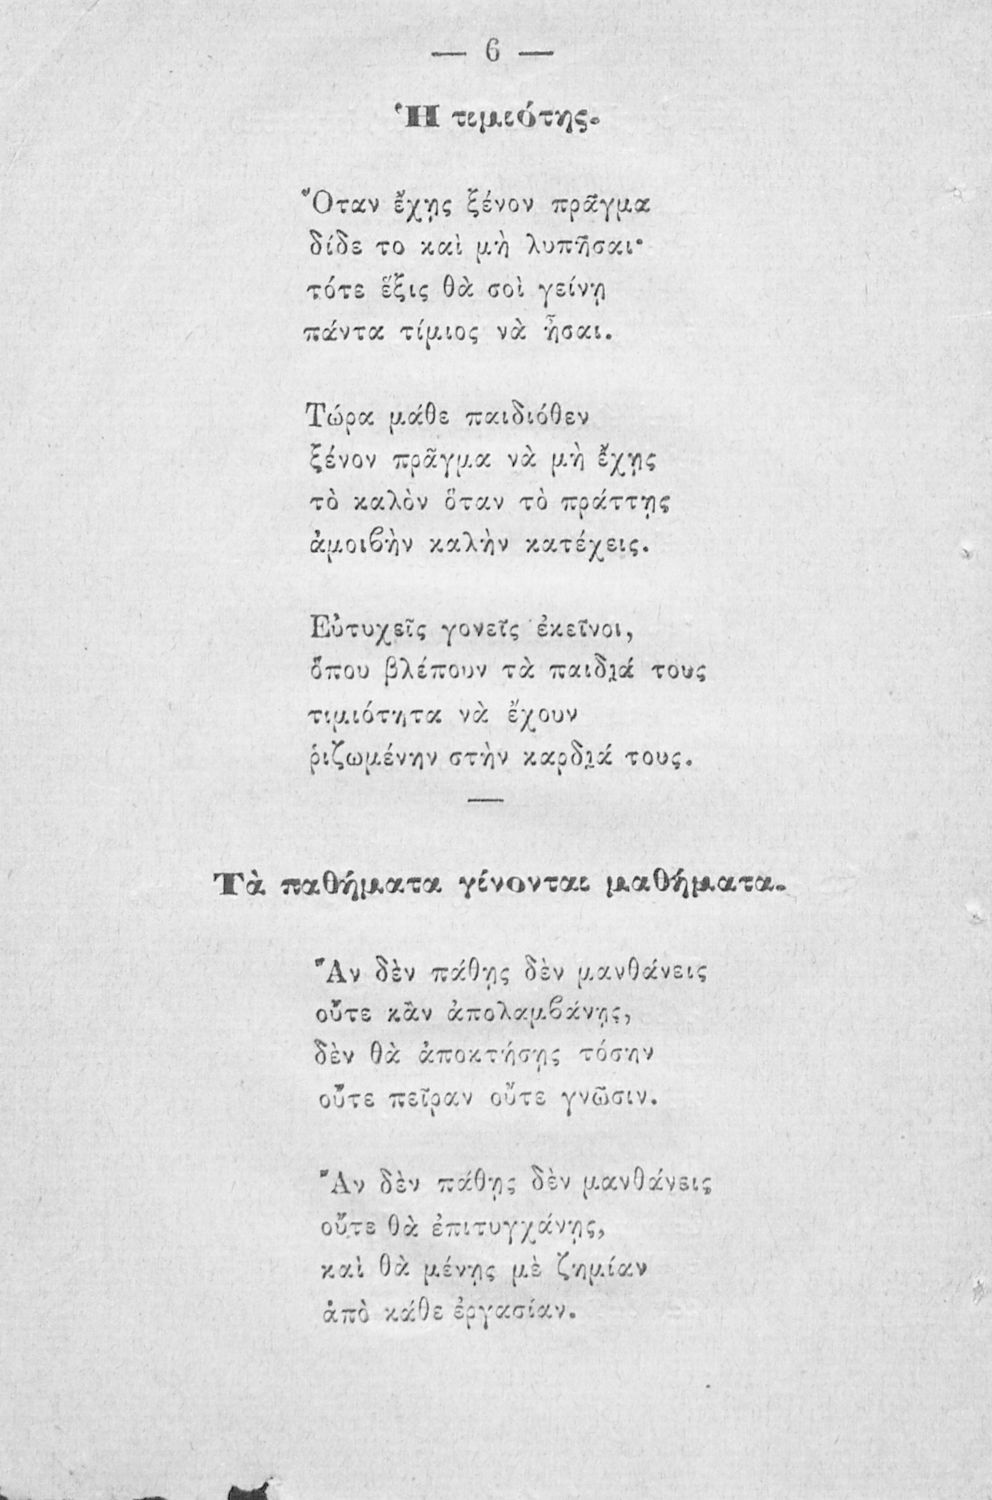 — 6 —
Ἡ τιμιότης.
Ὅταν ἔχῃς ξένον πρᾶγμα
δίδε το καὶ μὴ λυπῆσαι·
τότε ἕξις θὰ σοὶ γείνῃ
πάντα τίμιος νὰ ἦσαι.
Τώρα μάθε παιδιόθεν
ξένον πρᾶγμα νὰ μὴ ἔχῃς
τὸ καλὸν ὅταν τὸ πράττῃς
ἀμοιϐὴν καλὴν κατέχεις.
Εὐτυχεῖς γονεῖς ἐκεῖνοι,
ὅπου βλέπουν τὰ παιδι̮ά τους
τιμιότητα νὰ ἔχουν
ῥιζωμένην στὴν καρδι̮ά τους.
—
Τὰ παθήματα γίνονται μαθήματα.
Ἂν δὲν πάθῃς δὲν μανθάνεις
οὔτε κἂν ἀπολαμϐάνῃς,
δὲν θὰ ἀποκτήσῃς τόσην
οὔτε πεῖραν οὔτε γνῶσιν.
Ἂν δὲν πάθῃς δὲν μανθάνεις
οὔτε θὰ ἐπιτυγχάνῃς,
καὶ θὰ μένῃς μὲ ζημίαν
ἀπὸ κάθε ἐργασίαν.